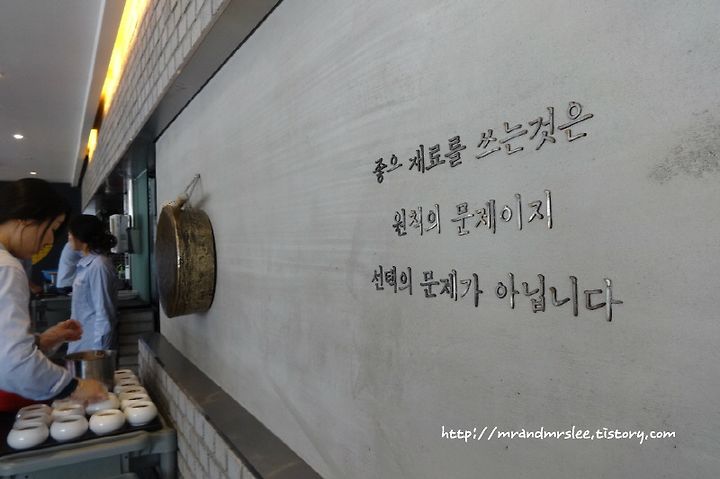 좋으 재료를 쓰는것은
원칙의 문제이지
선택의 문제가 아닙니다
http://mrandmrslee.tistory.com